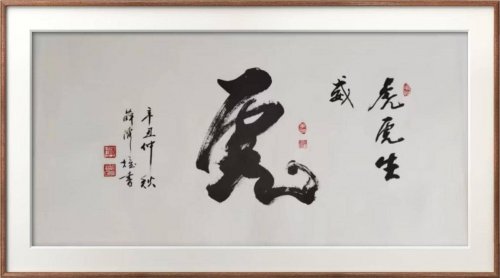 虎虎生
威
虎
辛丑仲秋
薛 书